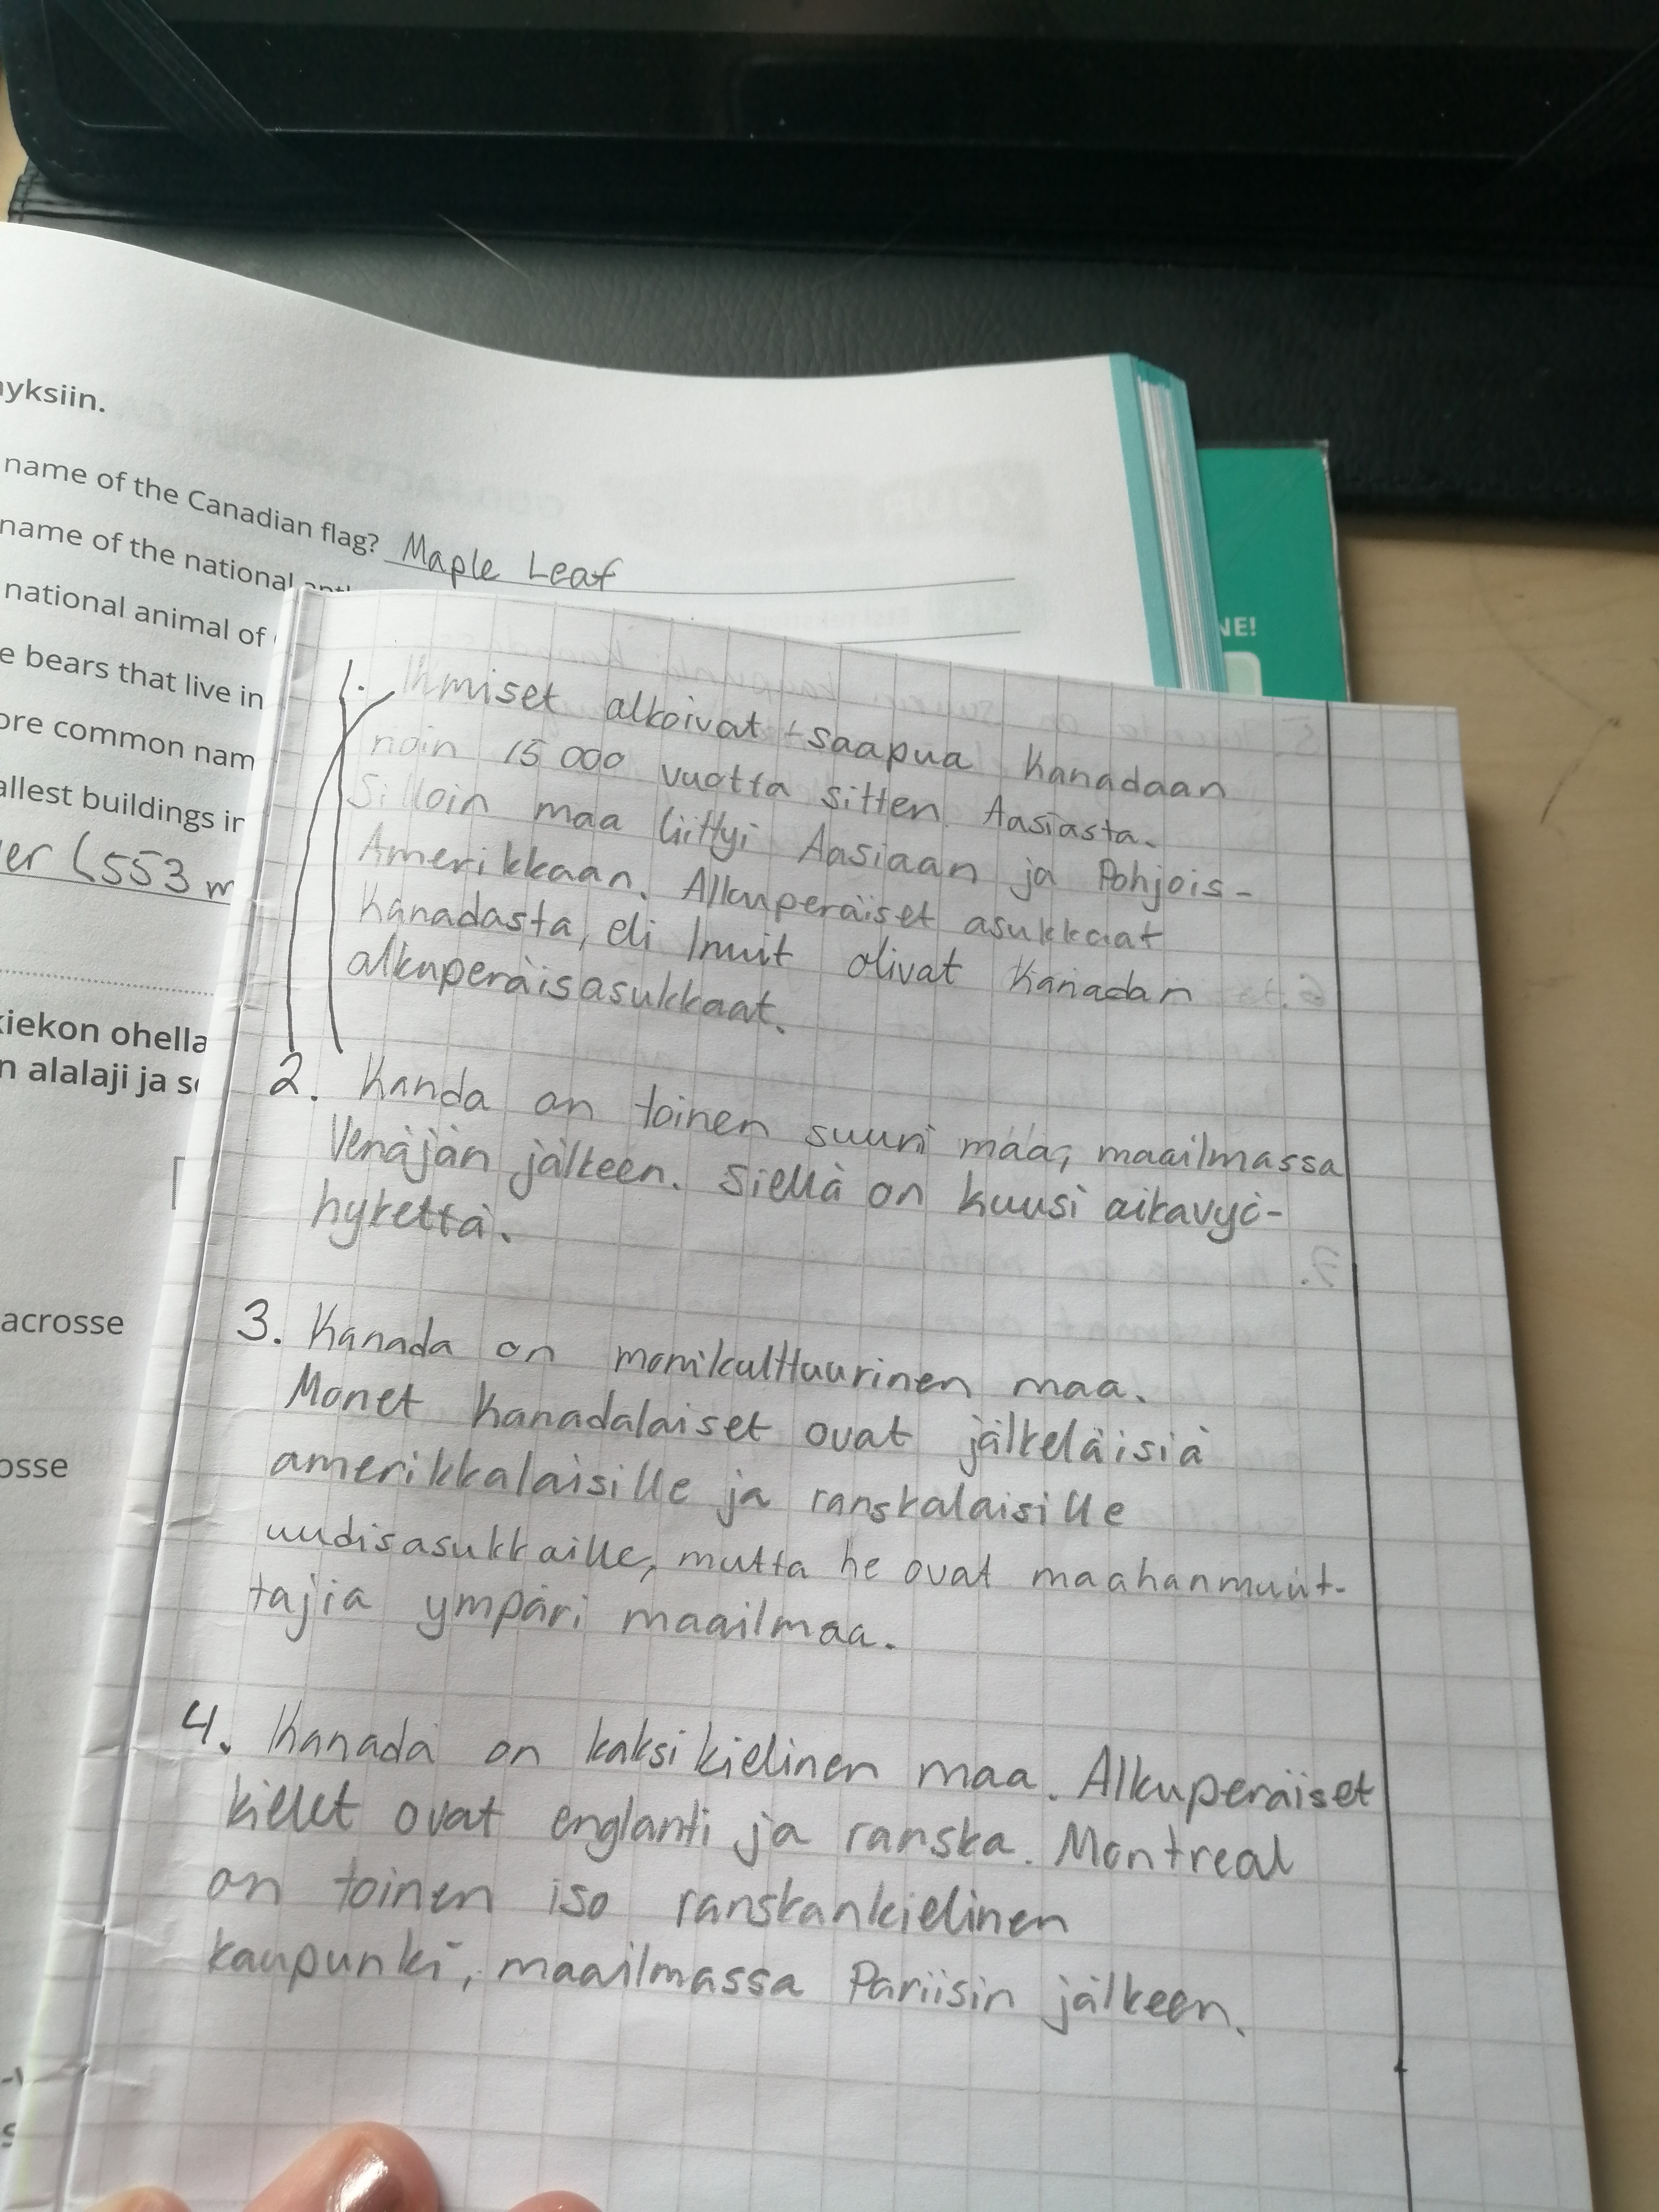 yksiin.
name of the Canadian flag? Maple Leaf
name of the national
national animal of
e bears that live in
ore common nam
allest buildings in
er (553 m
kiekon ohella
n alalaji ja s
acrosse
osse
NE!
1. Ihmiset alkoivat saapua Kanadaan
noin 15 000 vuotta sitten Aasiasta.
Silloin maa liittyi Aasiaan ja Pohjois-
Amerikkaan. Alkuperäiset asukkaat
Kanadasta, eli Inuit olivat Kanadan
alkuperäisasukkaat.
2. Kanda on toinen suuri maa, maailmassa
Venäjän jälkeen. Siellä on kuusi aikavyö-
hykettä.
3. Kanada on monikulttuurinen maa.
Monet Kanadalaiset ovat jälkeläisiä
amerikkalaisille ja ranskalaisille
uudisasukkaille, mutta he ovat maahanmuut-
tajia ympäri maailmaa.
4. Kanada on kaksikielinen maa. Alkuperäiset
kielet ovat englanti ja ranska. Montreal
on toinen iso ranskankielinen
kaupunki, maailmassa Pariisin jälkeen.